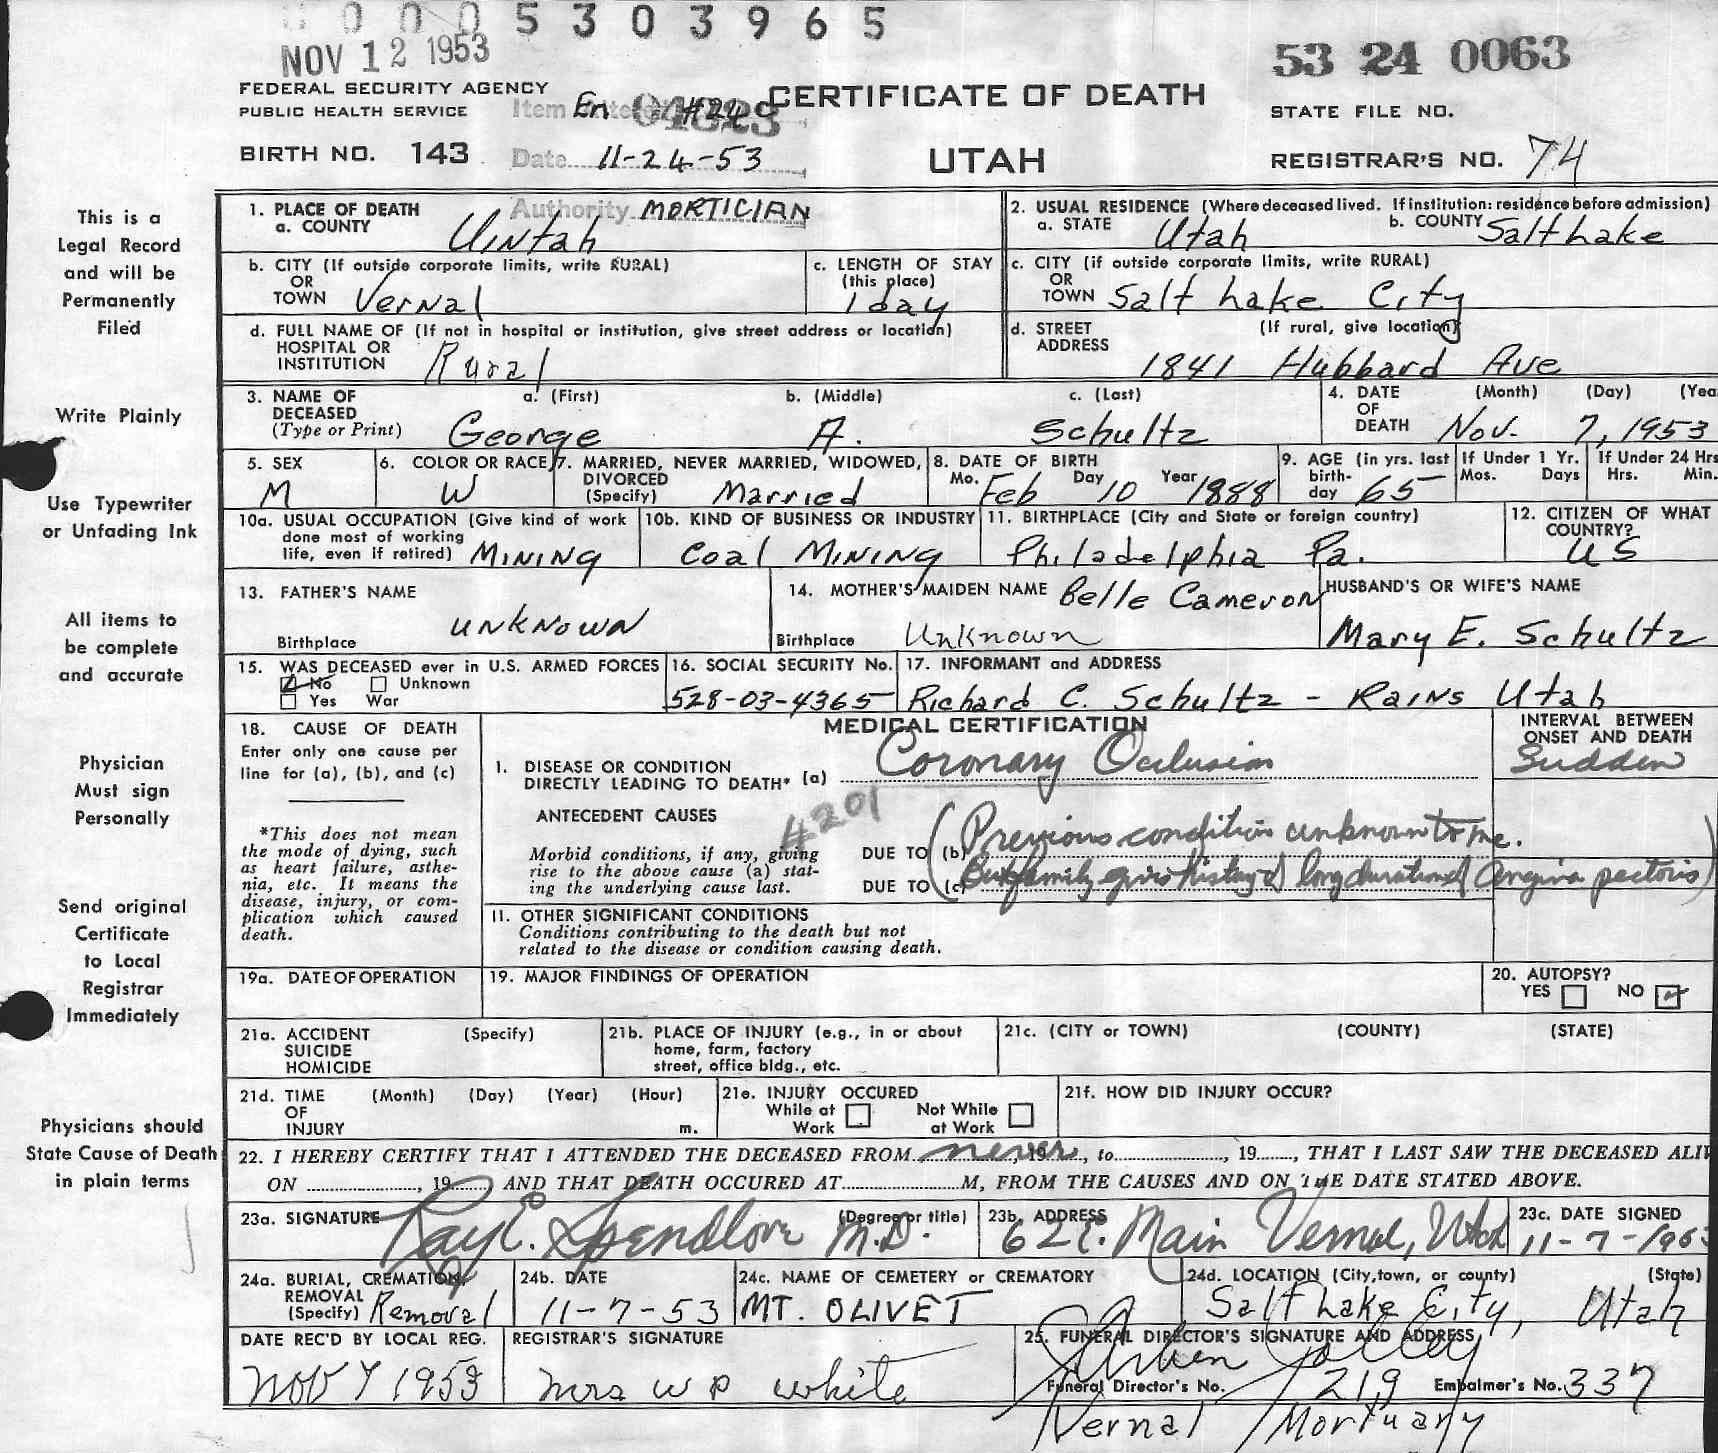 0 0 0 5 3 0 3 9 6 5
NOV 12 1953
53 24 0063
FEDERAL SECURITY AGENCY
PUBLIC HEALTH SERVICE
Item #24c
CERTIFICATE OF DEATH
STATE FILE NO.
BIRTH NO. 143
Date 11-24-53
UTAH
REGISTRAR'S NO. 74
Authority MORTICIAN
This is a
Legal Record
and will be
Permanently
Filed
1. PLACE OF DEATH
a. COUNTY Uintah
2. USUAL RESIDENCE (Where deceased lived. If institution: residence before admission)
a. STATE Utah b. COUNTY Salt Lake
b. CITY (If outside corporate limits, write RURAL)
OR
TOWN Vernal
c. LENGTH OF STAY
(this place)
1 day
c. CITY (if outside corporate limits, write RURAL)
OR
TOWN Salt Lake City
d. FULL NAME OF (If not in hospital or institution, give street address or location)
HOSPITAL OR
INSTITUTION Rural
d. STREET (If rural, give location)
ADDRESS
1841 Hubbard Ave
Write Plainly
3. NAME OF
DECEASED
(Type or Print)
a. (First) b. (Middle) c. (Last)
George A. Schultz
4. DATE (Month) (Day) (Yea
OF
DEATH Nov. 7, 1953
Use Typewriter
or Unfading Ink
5. SEX
M
6. COLOR OR RACE
W
7. MARRIED, NEVER MARRIED, WIDOWED,
DIVORCED
(Specify) Married
8. DATE OF BIRTH
Mo. Feb Day 10 Year 1888
9. AGE (in yrs. last
birth-
day 65
If Under 1 Yr.
Mos. Days
If Under 24 Hrs
Hrs. Min.
10a. USUAL OCCUPATION (Give kind of work
done most of working
life, even if retired) MINING
10b. KIND OF BUSINESS OR INDUSTRY
Coal MINING
11. BIRTHPLACE (City and State or foreign country)
Philadelphia Pa.
12. CITIZEN OF WHAT
COUNTRY?
US
All items to
be complete
and accurate
13. FATHER'S NAME
UNKNOWN
Birthplace
14. MOTHER'S MAIDEN NAME Belle Cameron
Birthplace Unknown
HUSBAND'S OR WIFE'S NAME
Mary E. Schultz
15. WAS DECEASED ever in U.S. ARMED FORCES
No Unknown
Yes War
16. SOCIAL SECURITY No.
528-03-4365
17. INFORMANT and ADDRESS
Richard C. Schultz - RAINS Utah
Physician
Must sign
Personally
18. CAUSE OF DEATH
Enter only one cause per
line for (a), (b), and (c)
*This does not mean
the mode of dying, such
as heart failure, asthe-
nia, etc. It means the
disease, injury, or com-
plication which caused
death.
MEDICAL CERTIFICATION
1. DISEASE OR CONDITION
DIRECTLY LEADING TO DEATH* (a) Coronary Occlusion
INTERVAL BETWEEN
ONSET AND DEATH
Sudden
ANTECEDENT CAUSES
4201
Morbid conditions, if any, giving
rise to the above cause (a) stat-
ing the underlying cause last.
DUE TO (b) (Previous condition unknown to me.
DUE TO (c) But family gives history of long duration of Angina pectoris)
11. OTHER SIGNIFICANT CONDITIONS
Conditions contributing to the death but not
related to the disease or condition causing death.
Send original
Certificate
to Local
Registrar
Immediately
19a. DATE OF OPERATION
19. MAJOR FINDINGS OF OPERATION
20. AUTOPSY?
YES NO
21a. ACCIDENT (Specify)
SUICIDE
HOMICIDE
21b. PLACE OF INJURY (e.g., in or about
home, farm, factory
street, office bldg., etc.
21c. (CITY or TOWN) (COUNTY) (STATE)
21d. TIME (Month) (Day) (Year) (Hour)
OF
INJURY m.
21e. INJURY OCCURED
While at Not While
Work at Work
21f. HOW DID INJURY OCCUR?
Physicians should
State Cause of Death
in plain terms
22. I HEREBY CERTIFY THAT I ATTENDED THE DECEASED FROM never, 19, to, 19, THAT I LAST SAW THE DECEASED ALIV
ON, 19 AND THAT DEATH OCCURED AT M, FROM THE CAUSES AND ON THE DATE STATED ABOVE.
23a. SIGNATURE (Degree or title)
Ray E. Spendlove M.D.
23b. ADDRESS
62 E. Main Vernal, Utah
23c. DATE SIGNED
11-7-1953
24a. BURIAL, CREMATION,
REMOVAL
(Specify) Removal
24b. DATE
11-7-53
24c. NAME OF CEMETERY or CREMATORY
MT. OLIVET
24d. LOCATION (City, town, or county) (State)
Salt Lake City, Utah
DATE REC'D BY LOCAL REG.
Nov 7 1953
REGISTRAR'S SIGNATURE
Mrs W P White
25. FUNERAL DIRECTOR'S SIGNATURE AND ADDRESS
Funeral Director's No. 219 Embalmer's No. 337
Vernal Mortuary